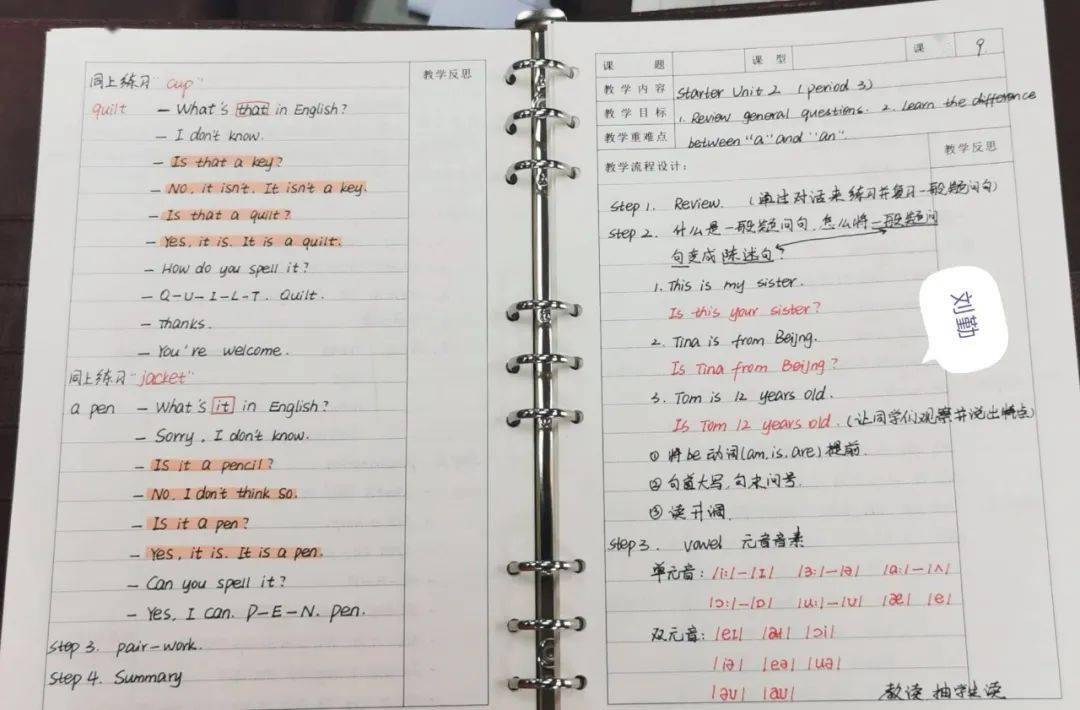 同上练习 "cup"
教学反思
quilt - What's that in English?
- I don't know.
- Is that a key?
- No, it isn't. It isn't a key.
- Is that a quilt?
- Yes, it is. It is a quilt.
- How do you spell it?
- Q-U-I-L-T. Quilt.
- Thanks.
- You're welcome.
同上练习 "jacket"
a pen - What's it in English?
- Sorry, I don't know.
- Is it a pencil?
- No, I don't think so.
- Is it a pen?
- Yes, it is. It is a pen.
- Can you spell it?
- Yes, I can. P-E-N. pen.
Step 3. pair-work.
Step 4. Summary
课题 课型 课 9
教学内容 Starter Unit 2 (period 3)
教学目标 1. Review general questions. 2. Learn the difference
教学重难点 between "a" and "an".
教学流程设计: 教学反思
Step 1. Review. (通过对话来练习并复习一般疑问句)
Step 2. 什么是一般疑问句,怎么将一般疑问
句变成陈述句?
1. This is my sister.
Is this your sister?
2. Tina is from Beijng.
Is Tina from Beijng?
3. Tom is 12 years old.
Is Tom 12 years old. (让同学们观察并说出特点)
① 将be动词(am, is, are)提前.
② 句首大写,句末问号.
③ 读升调.
Step 3. vowel 元音音素
单元音: /i:/-/ɪ/ /ɜ:/-/ə/ /ɑ:/-/ʌ/
/ɔ:/-/ɒ/ /u:/-/ʊ/ /æ/ /e/
双元音: /eɪ/ /aɪ/ /ɔi/
/iə/ /eə/ /uə/
/əʊ/ /aʊ/ 教读 抽学生读
刘勤